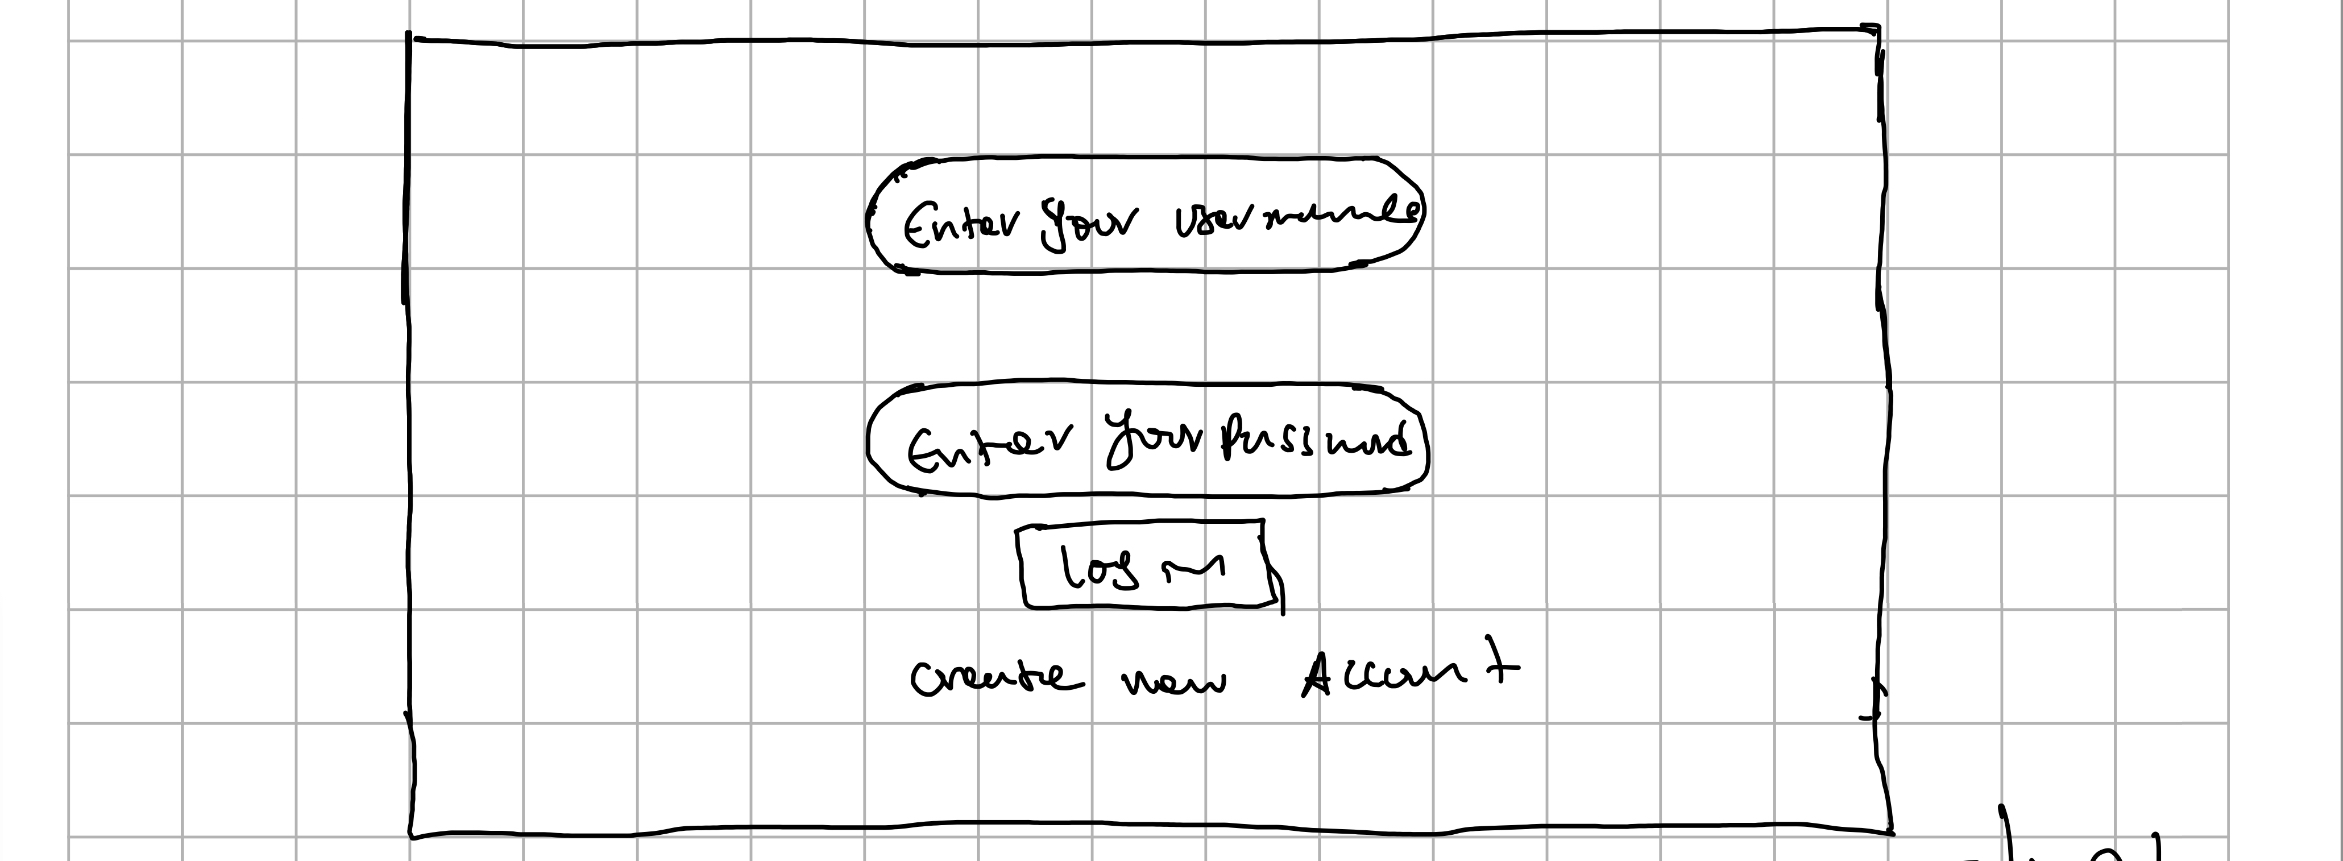 Enter your username
Enter your password
log in
create new Account